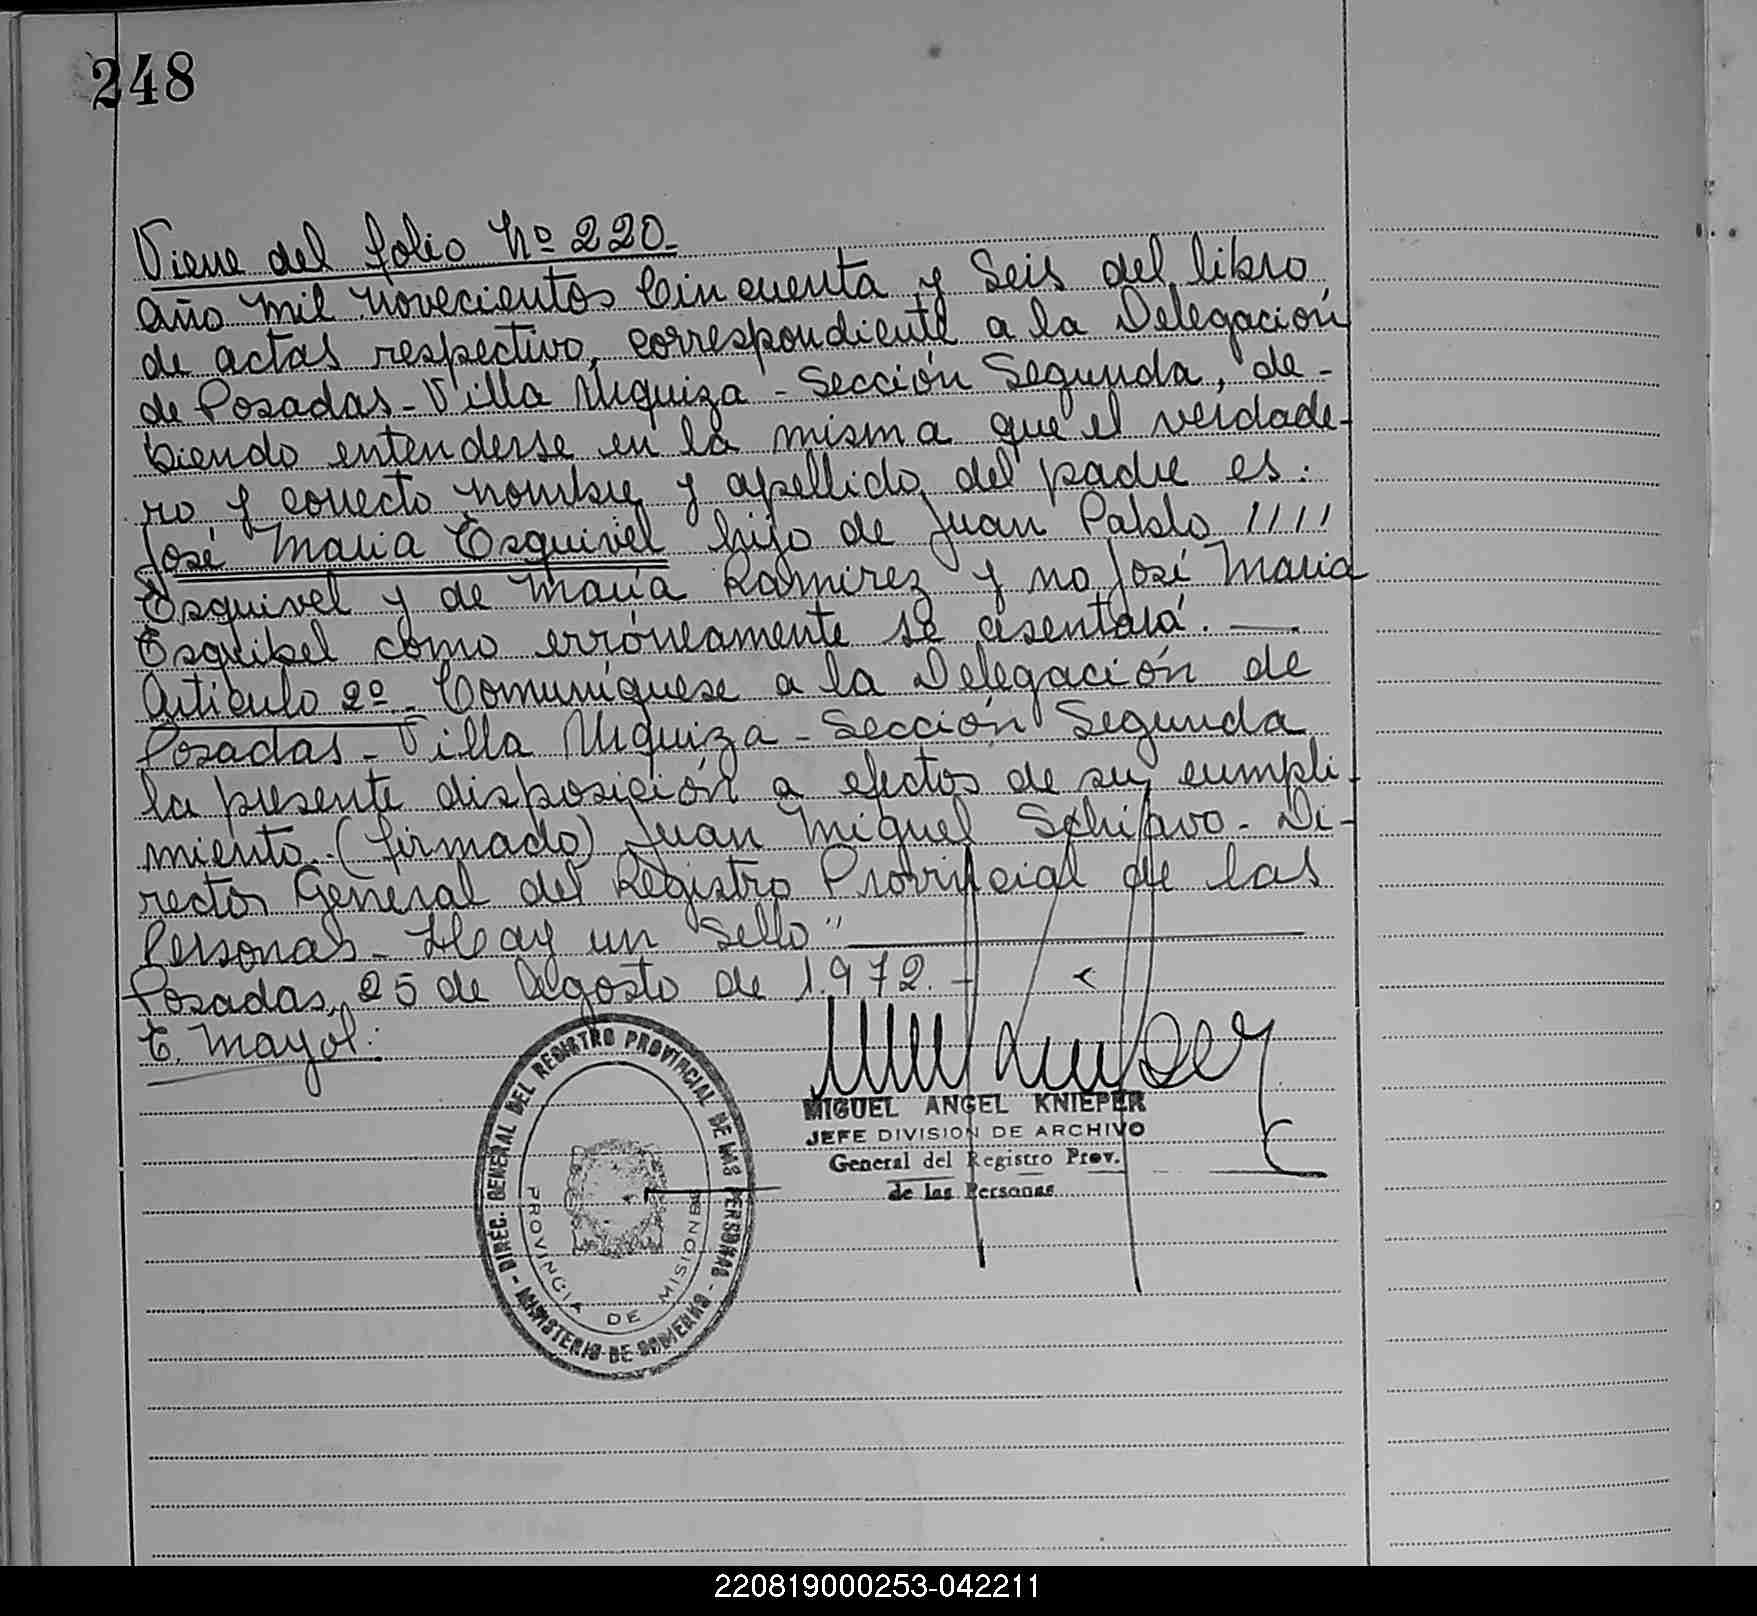 248
Viene del folio Nº 220.-
Año mil novecientos Cincuenta y Seis del libro
de actas respectivo, correspondiente a la Delegación
de Posadas - Villa Urquiza - Sección Segunda, de-
biendo entenderse en la misma que el verdade-
ro y correcto nombre y apellido del padre es:
José Maria Esquivel hijo de Juan Pablo /////
Esquivel y de María Ramirez y no José Maria
Esquibel como erróneamente se asentará. —.
Artículo 2º- Comuníquese a la Delegación de
Posadas - Villa Urquiza - Sección Segunda
la presente disposición a efectos de su cumpli-
miento. (firmado) Juan Miguel Schiavo - Di-
rector General del Registro Provincial de las
Personas - Hay un sello" —
Posadas, 25 de Agosto de 1.972.-
E. Mayol:
DIREC. GENERAL DEL REGISTRO PROVINCIAL DE LAS PERSONAS - MINISTERIO DE GOBIERNO -
PROVINCIA DE MISIONES
MIGUEL ANGEL KNIEPER
JEFE DIVISION DE ARCHIVO
General del Registro Prov.
de las Personas
220819000253-042211